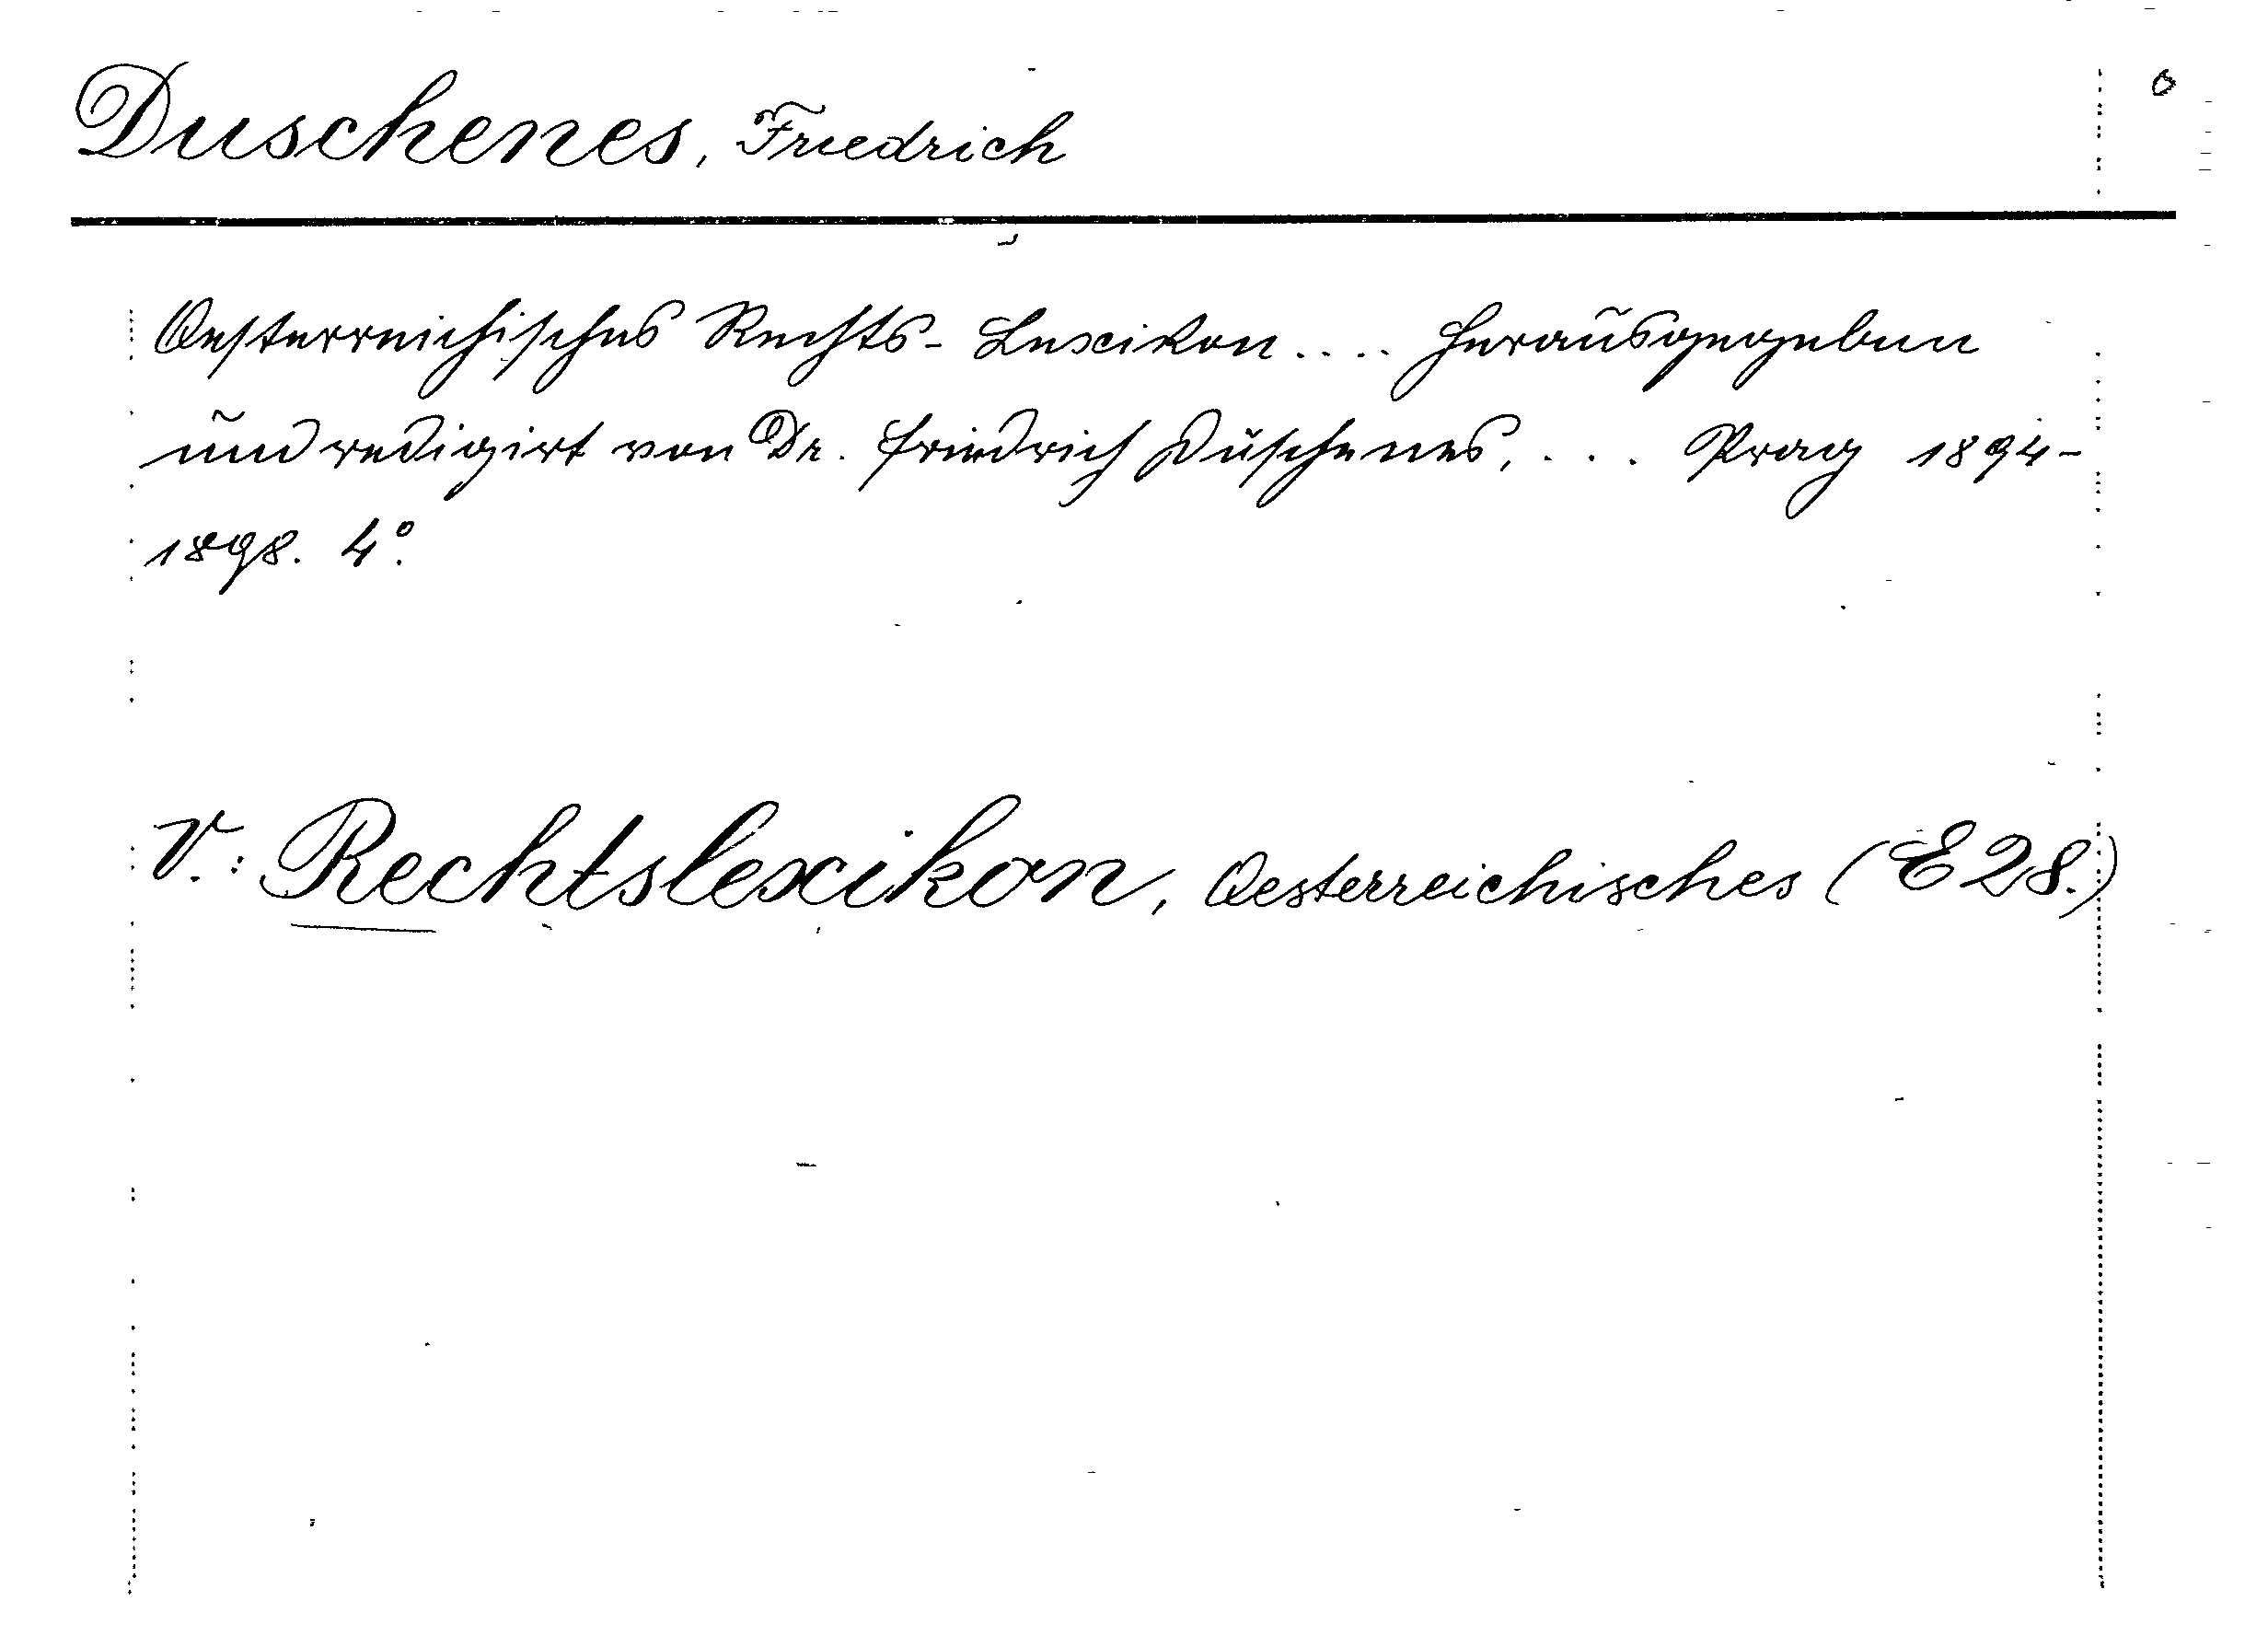 Duschenes, Friedrich
Oesterreichisches Rechts-Lexikon.... Herausgegeben
und redigirt von Dr. Friedrich Duschenes, ... Prag 1894-
1898. 4°.
V.: Rechtslexikon, Oesterreichisches (E 28.)